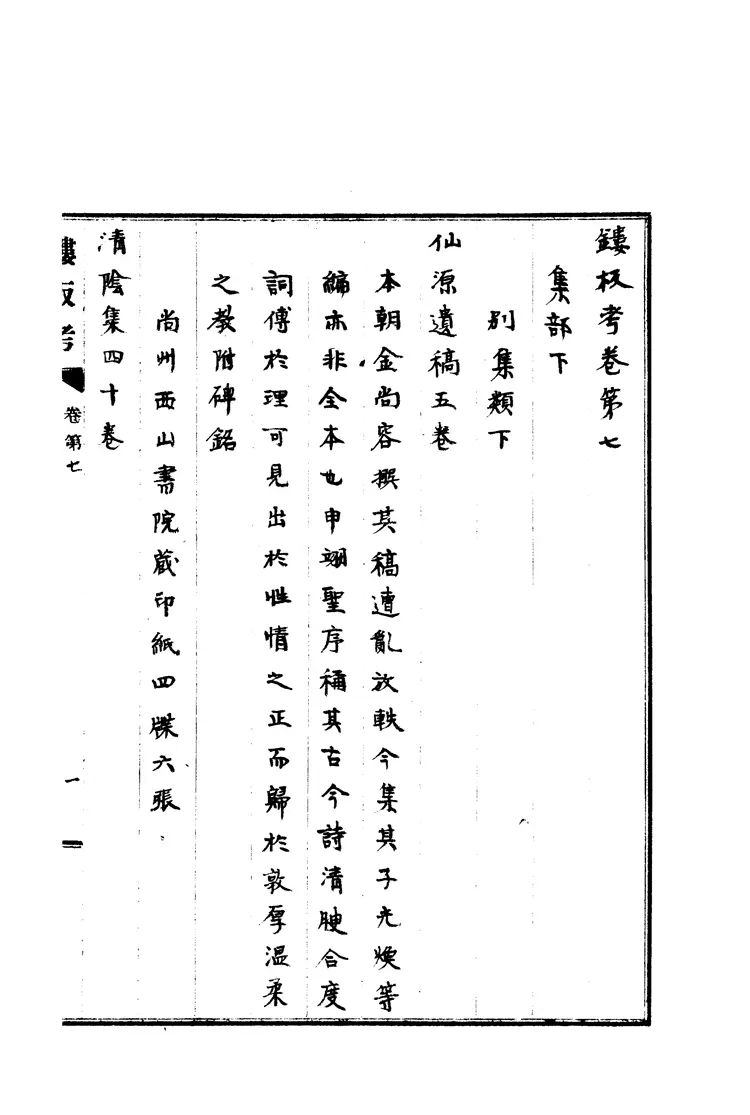 鏤板考卷第七
集部下
別集類下
仙源遺稿五卷
本朝金尚容撰其稿遭亂放軼今集其子光煥等
編亦非全本也申翊聖序稱其古今詩清腴合度
詞傅於理可見出於性情之正而歸於敦厚温柔
之教附碑銘
尚州西山書院蔵印紙四牒六張
清陰集四十卷
鏤板考
卷第七
一